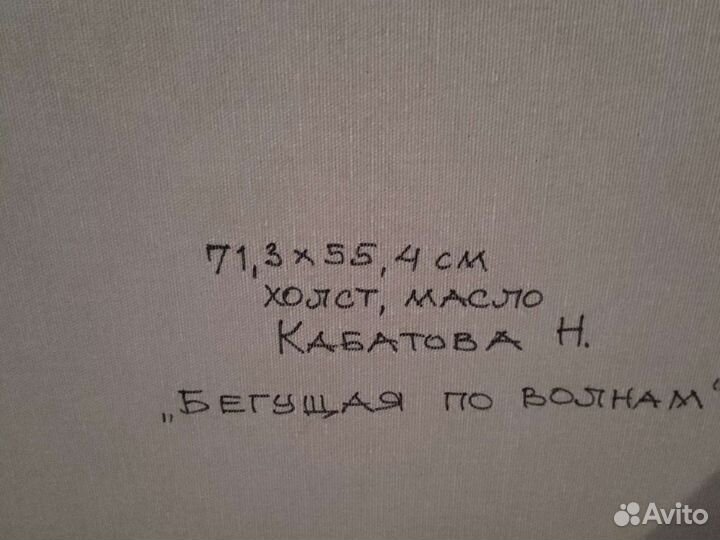 71,3 x 55,4 см
холст, масло
Кабатова Н.
„Бегущая по волнам“
Avito